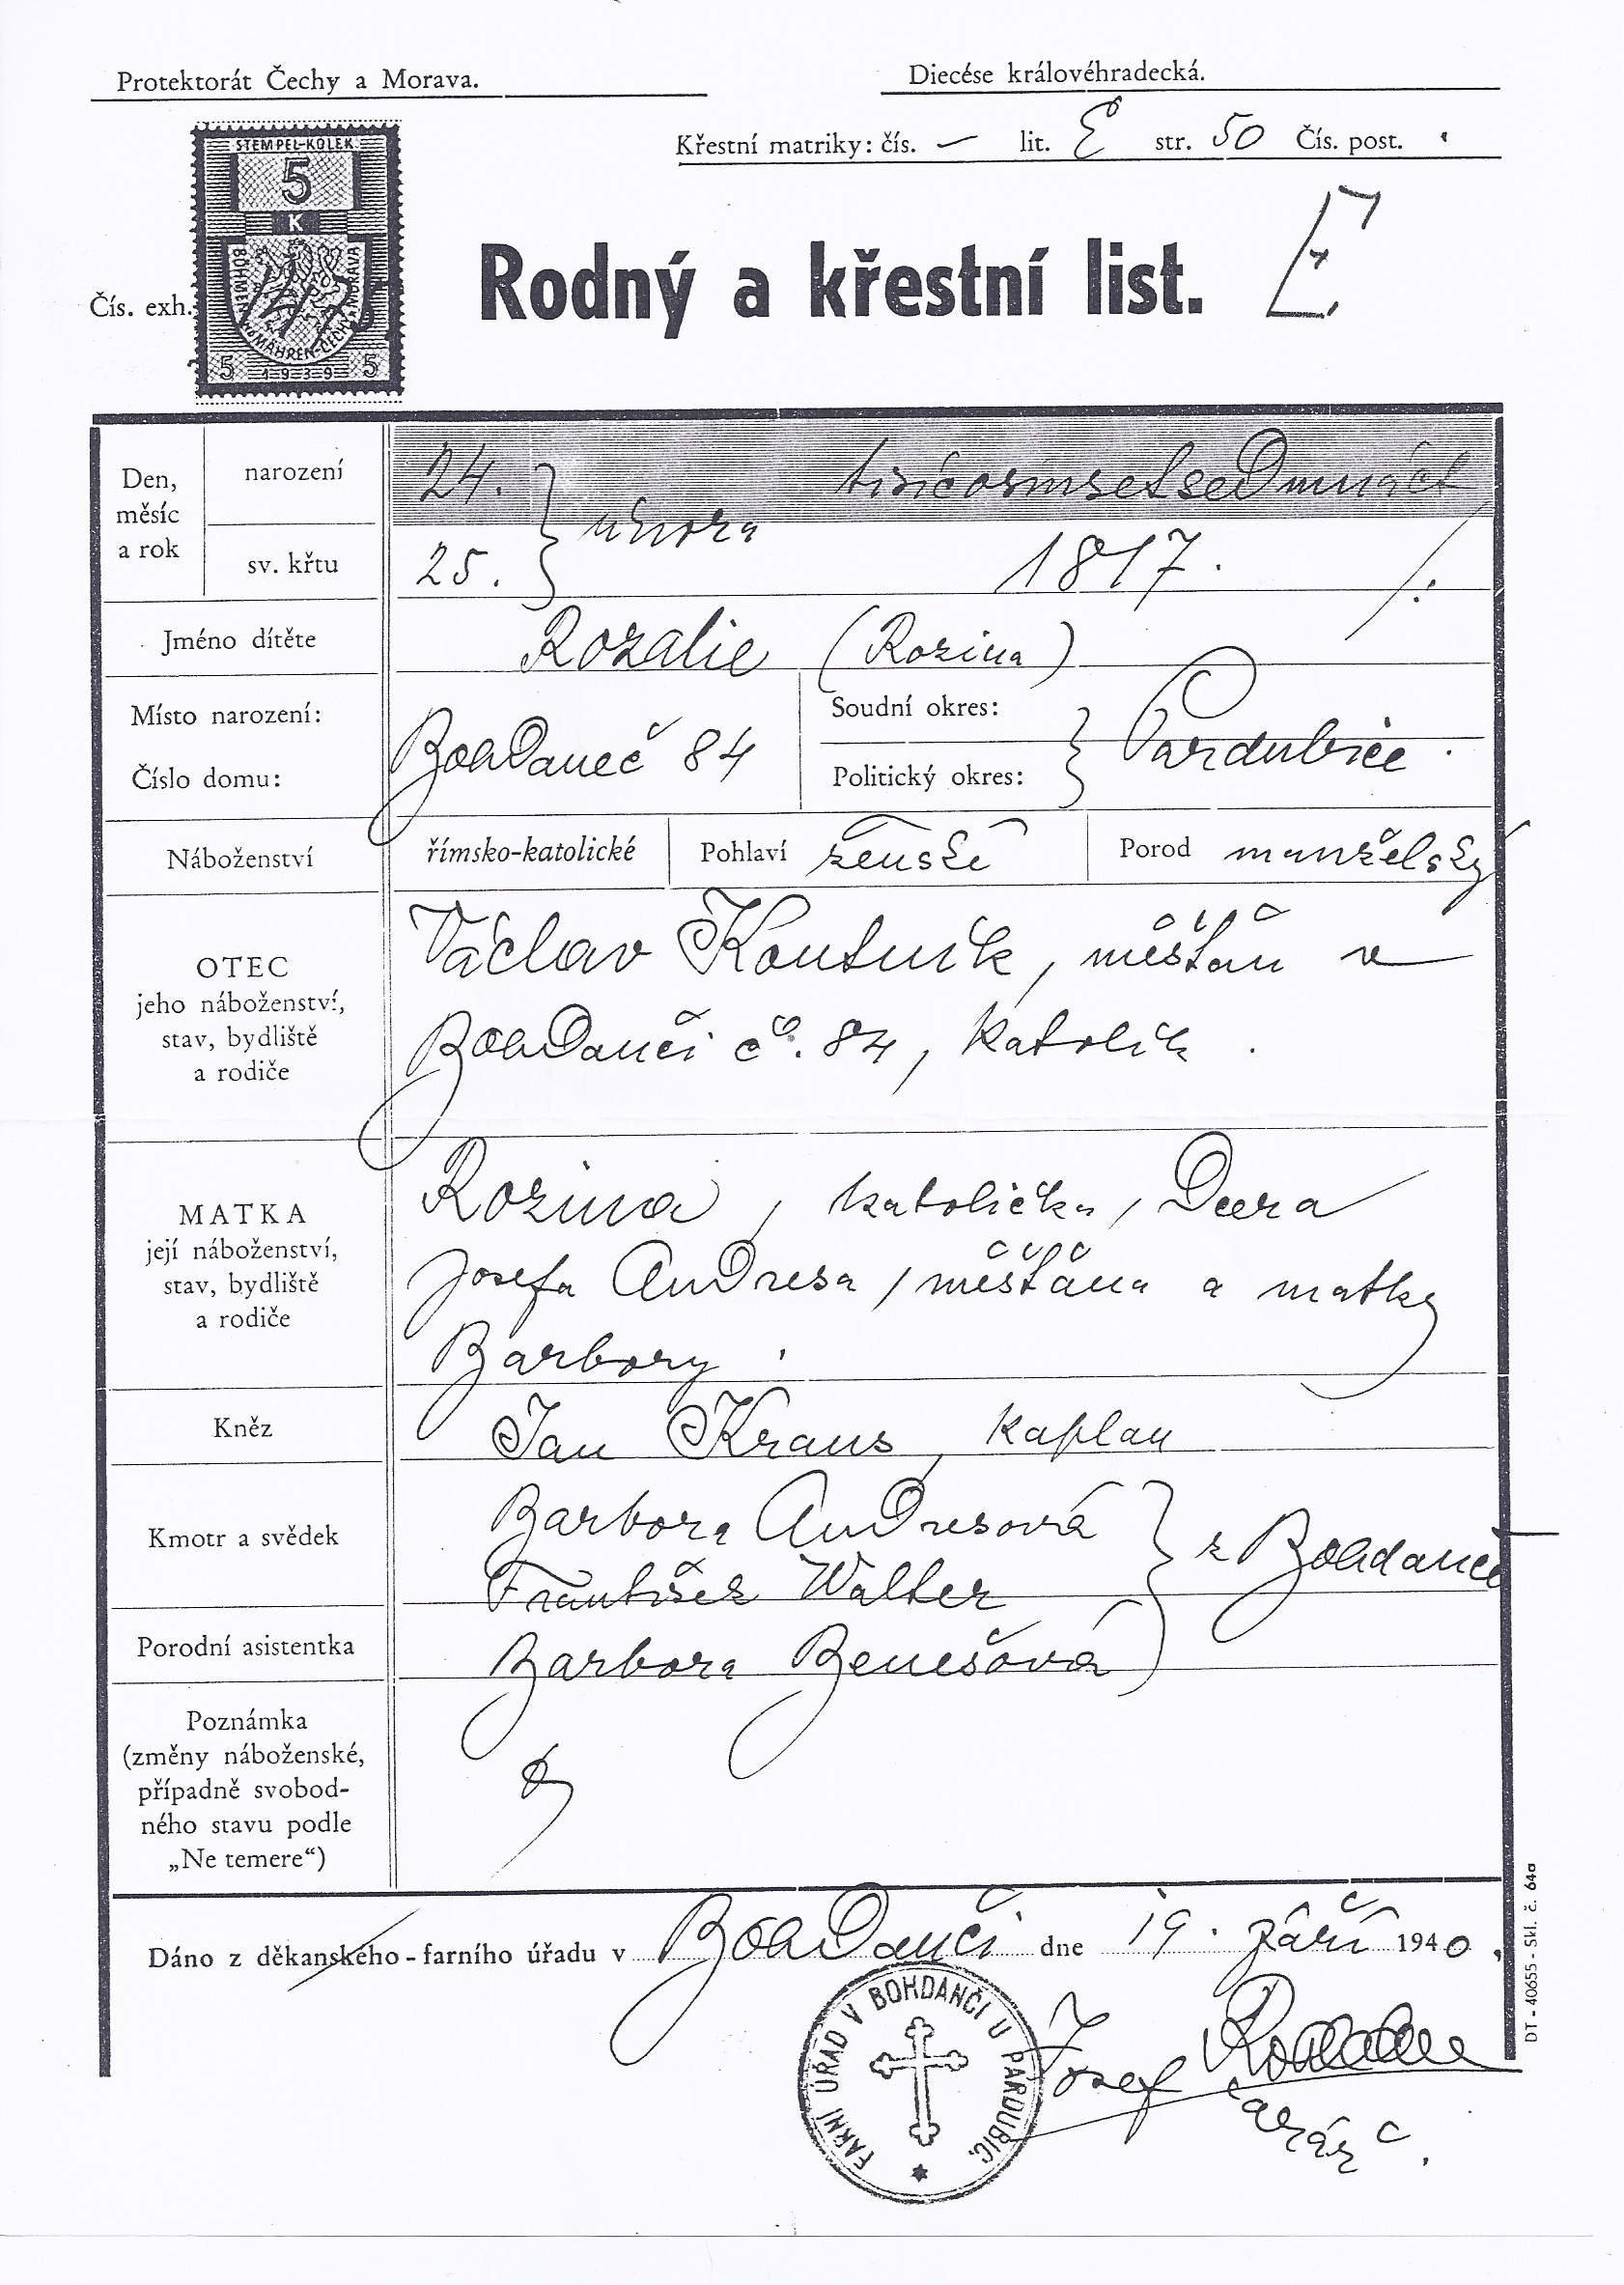 Protektorát Čechy a Morava.
Diecése královéhradecká.
Křestní matriky: čís. — lit. E str. 50 Čís. post.
STEMPEL-KOLEK
5
K
BÖHMEN u. MÄHREN-ČECHY a MORAVA
5 1939 5
Čís. exh.
Rodný a křestní list.
Den, měsíc a rok
narození
24. února tisícosmsetsedmnáct
sv. křtu
25. 1817.
Jméno dítěte
Rozalie (Rozina)
Místo narození:
Číslo domu:
Bohdaneč 84
Soudní okres:
Politický okres:
Pardubice.
Náboženství
římsko-katolické
Pohlaví ženské
Porod manželský
OTEC
jeho náboženství,
stav, bydliště
a rodiče
Václav Koutník, měšťan v
Bohdanči č. 84, katolík.
MATKA
její náboženství,
stav, bydliště
a rodiče
Rozina, katolička, dcera
Josefa Andresa, měšťana a matky
Barbory.
Kněz
Jan Kraus, kaplan
Kmotr a svědek
Barbora Andresová
František Walter
z Bohdanče
Porodní asistentka
Barbora Benešová
Poznámka
(změny náboženské,
případně svobod-
ného stavu podle
„Ne temere“)
Dáno z děkanského-farního úřadu v Bohdanči dne 19. září 1940.
FARNÍ ÚŘAD V BOHDANČI U PARDUBIC.
Josef
farář.
DT - 40655 - Skl. č. 64a